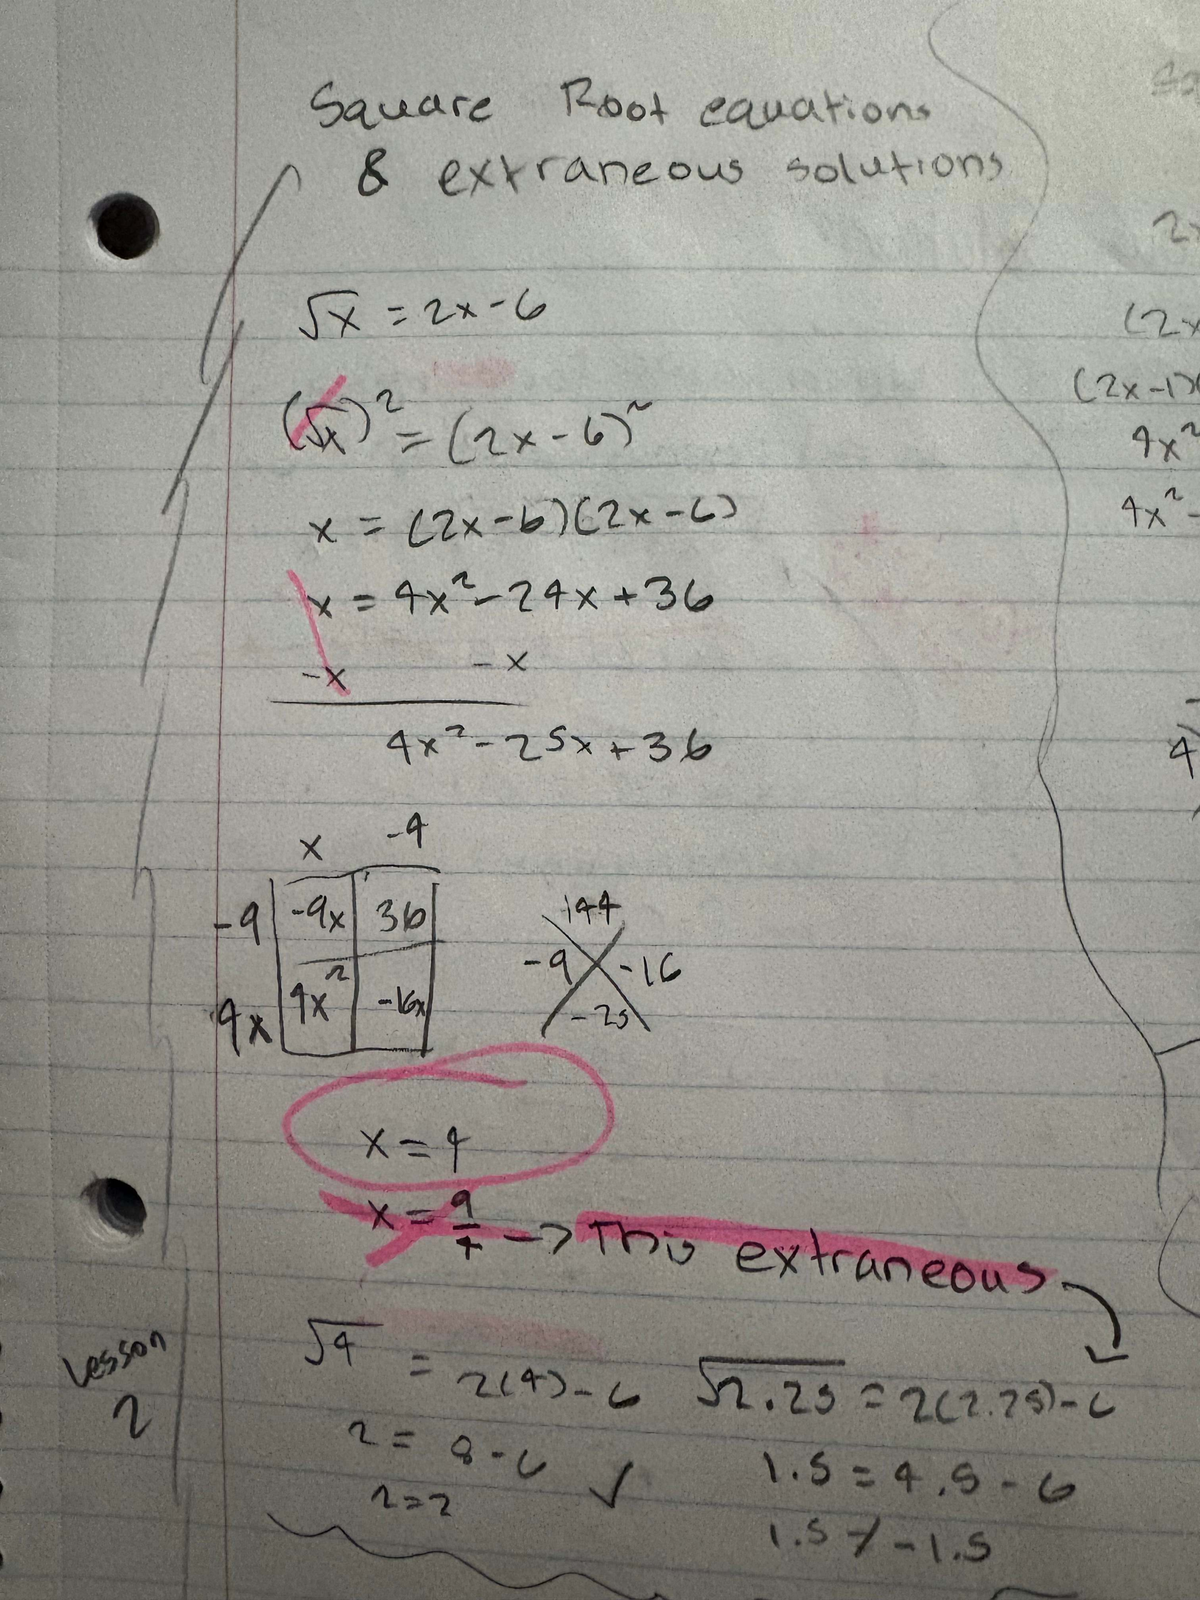 Square Root equations
& extraneous solutions
√x = 2x - 6
(√x)² = (2x - 6)²
x = (2x - 6)(2x - 6)
x = 4x² - 24x + 36
-x - x
4x² - 25x + 36
x -4
-9 -9x 36
4x 4x² -16x
144
-9 -16
-25
x = 4
x = 9/4 -> This extraneous
Lesson
2
√4 = 2(4) - 6
2 = 8 - 6 ✓
2 = 2
√2.25 = 2(2.25) - 6
1.5 = 4.5 - 6
1.5 ≠ -1.5
2x
(2x
(2x-1)(
4x²
4x² -
4